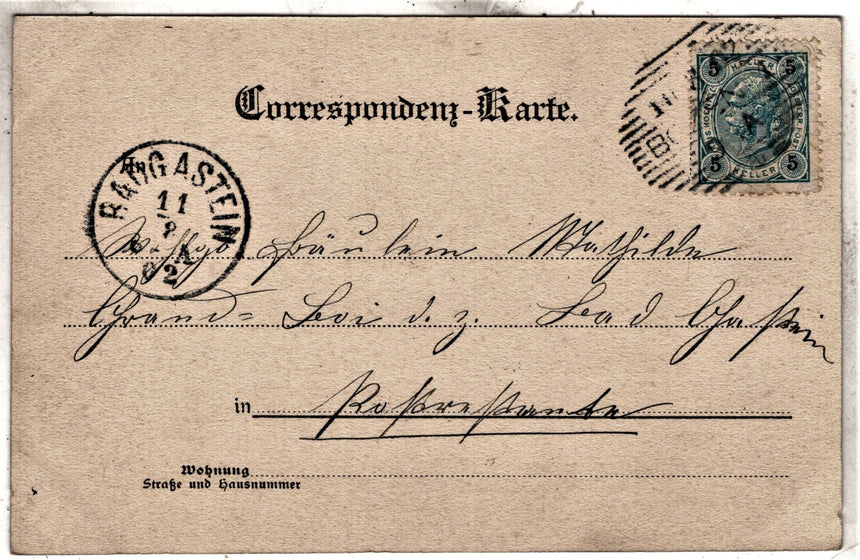 Correspondenz-Karte.
5 HELLER 5
5 HELLER 5
BADGASTEIN
11
8
2
Fräulein Mathilde
Grand= d. z. Bad Gastein
in Postrestante
Wohnung
Straße und Hausnummer